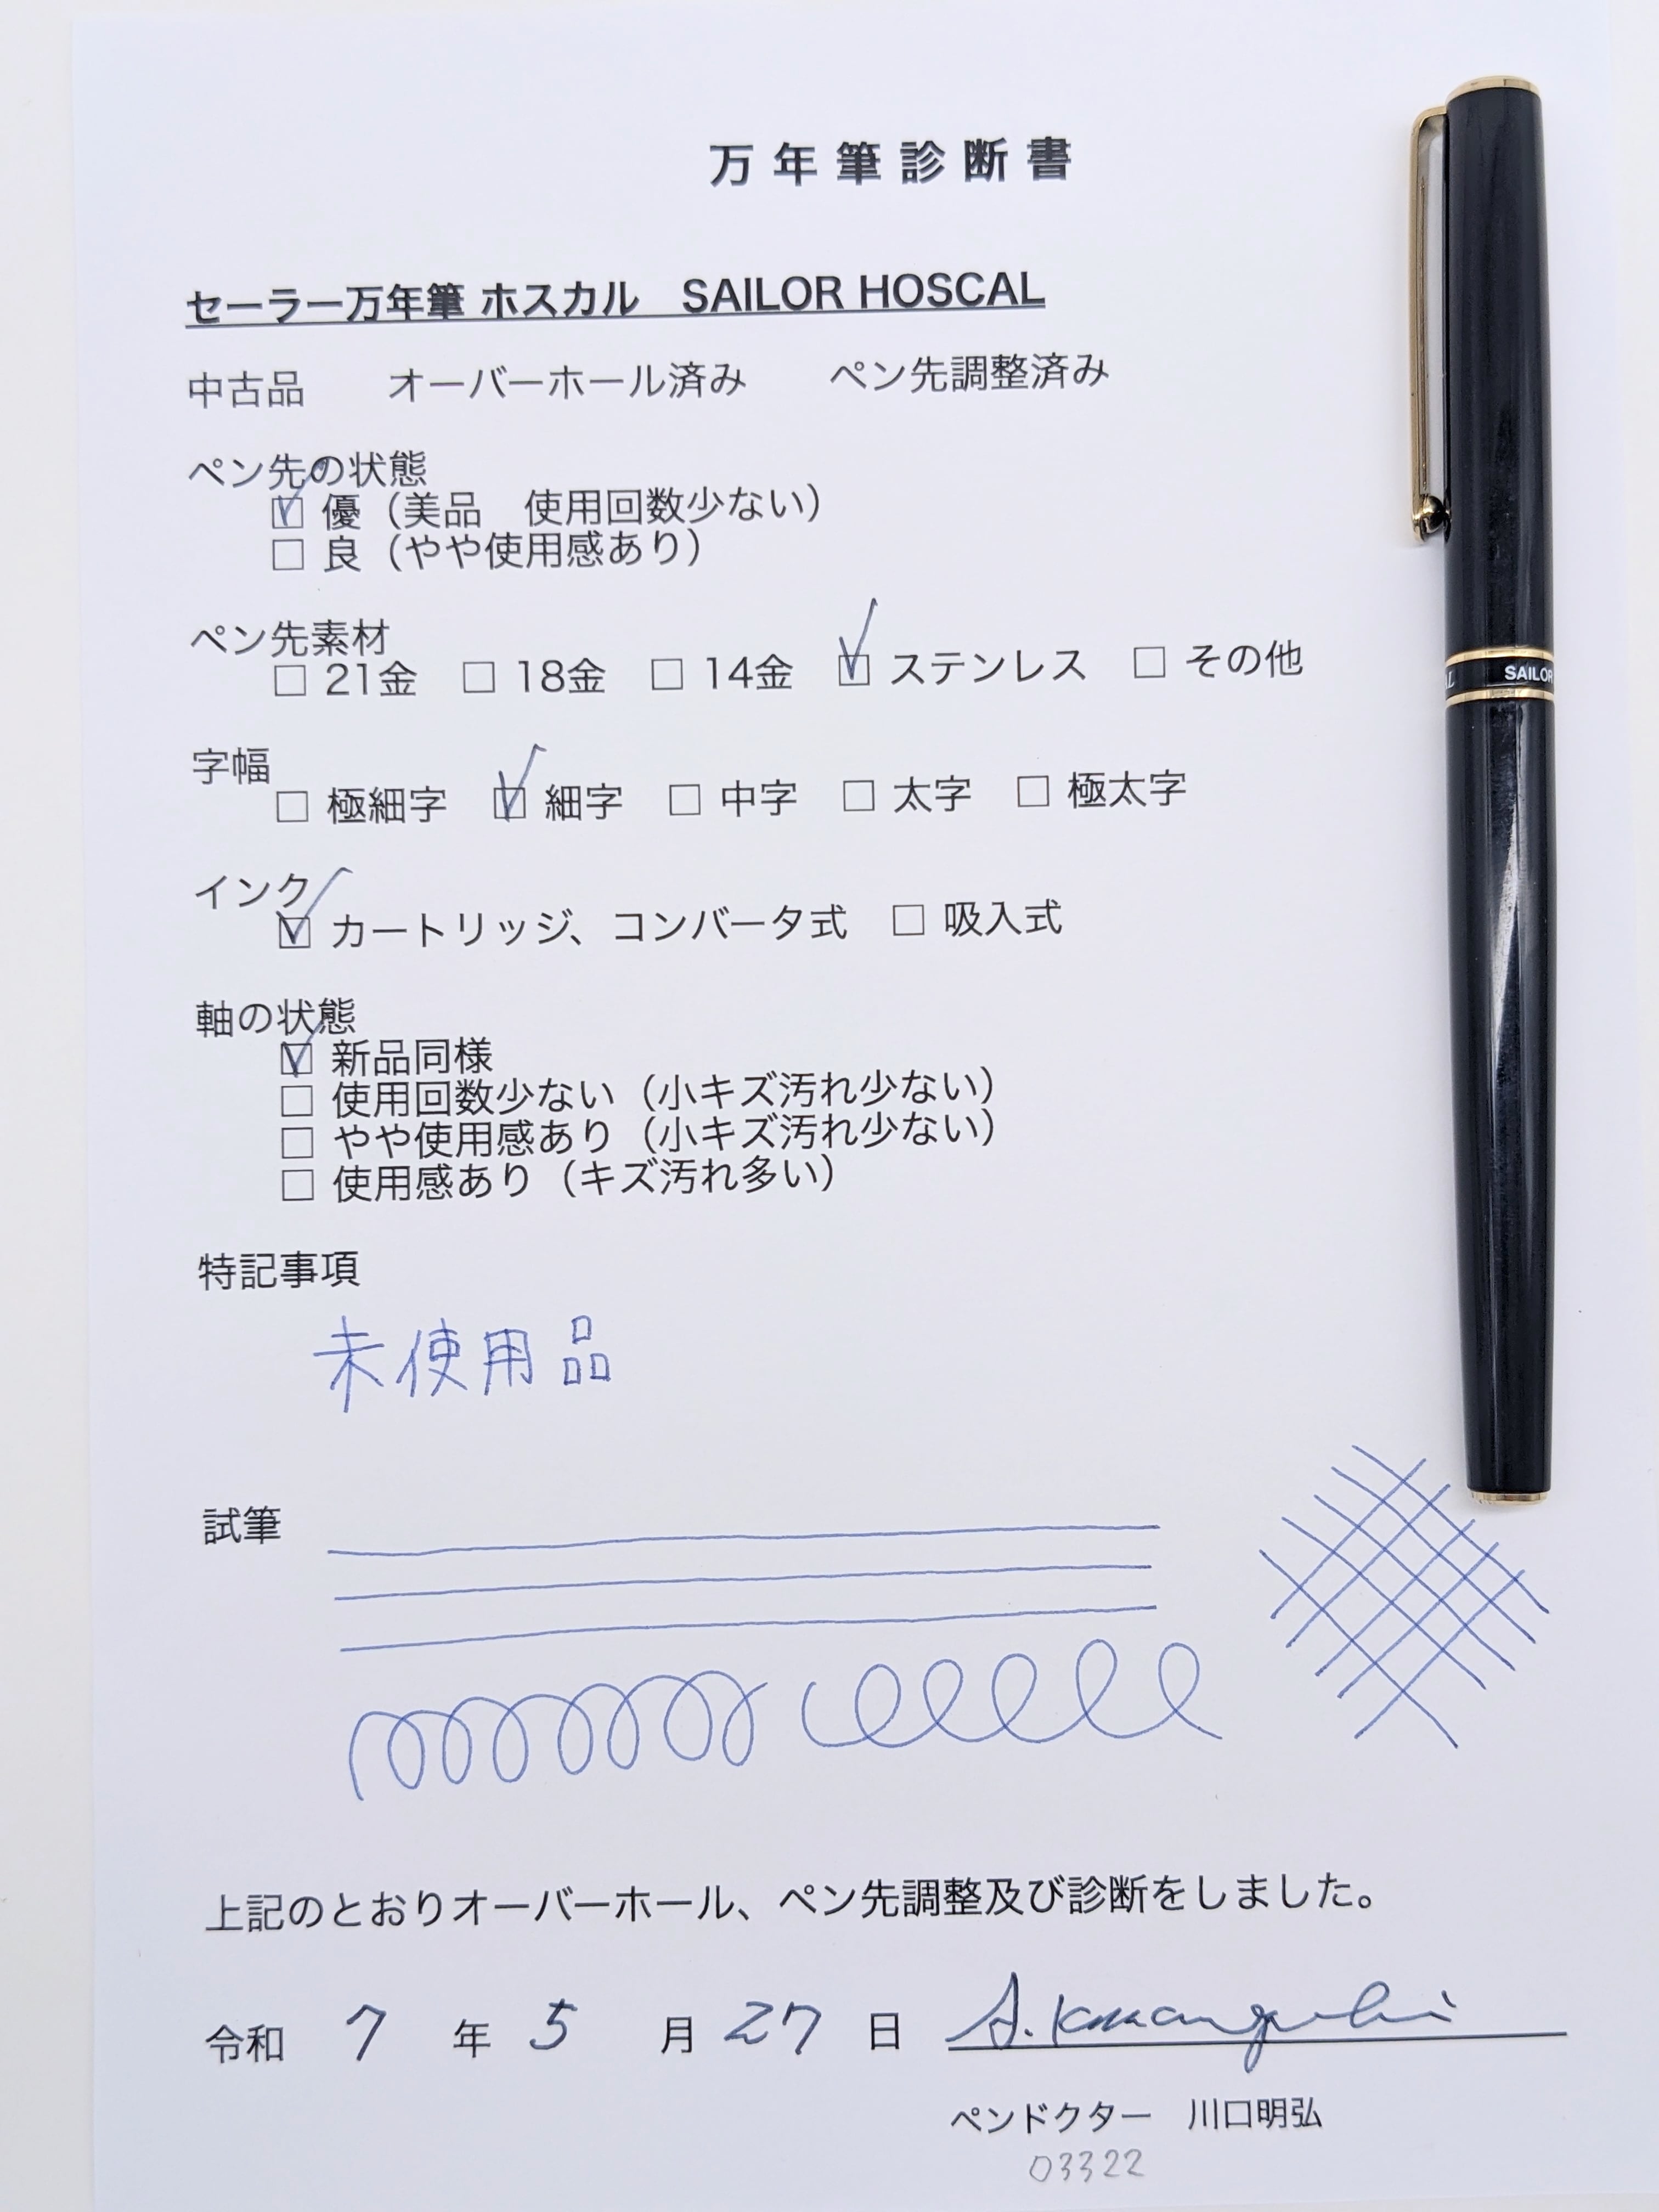 万年筆診断書
セーラー万年筆 ホスカル　SAILOR HOSCAL
中古品　　オーバーホール済み　　ペン先調整済み
ペン先の状態
☑ 優（美品　使用回数少ない）
□ 良（やや使用感あり）
ペン先素材
□ 21金　□ 18金　□ 14金　☑ ステンレス　□ その他
字幅
□ 極細字　☑ 細字　□ 中字　□ 太字　□ 極太字
インク
☑ カートリッジ、コンバータ式　□ 吸入式
軸の状態
☑ 新品同様
□ 使用回数少ない（小キズ汚れ少ない）
□ やや使用感あり（小キズ汚れ少ない）
□ 使用感あり（キズ汚れ多い）
特記事項
未使用品
試筆
上記のとおりオーバーホール、ペン先調整及び診断をしました。
令和 7 年 5 月 27 日 A. Kawaguchi
ペンドクター　川口明弘
03322
SAILOR